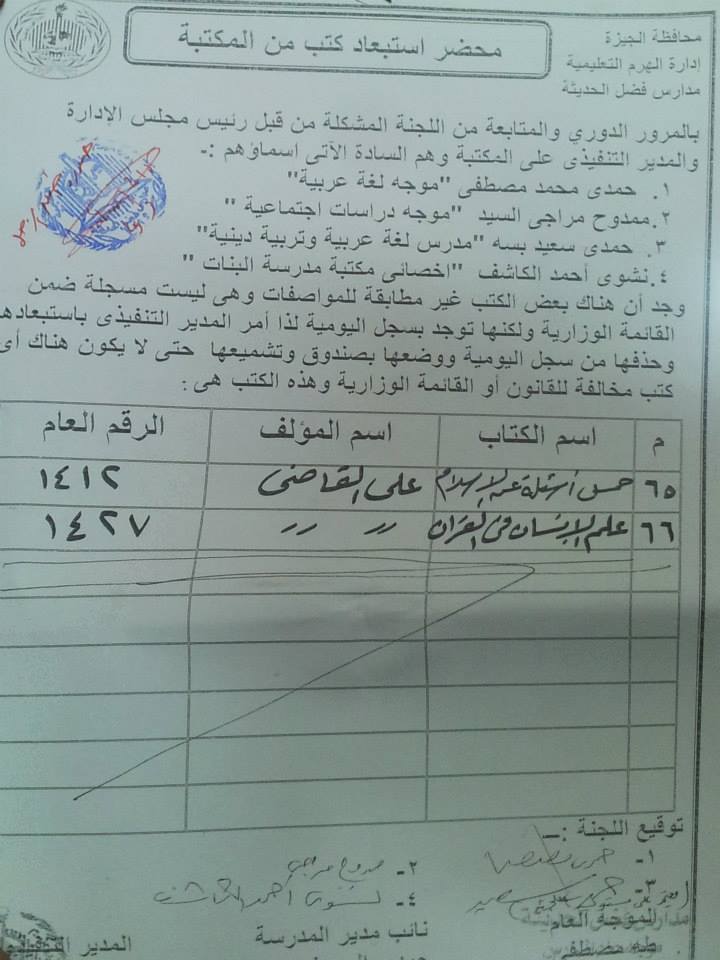 محافظة الجيزة
إدارة الهرم التعليمية
مدارس فضل الحديثة
محضر استبعاد كتب من المكتبة
بالمرور الدوري والمتابعة من اللجنة المشكلة من قبل رئيس مجلس الإدارة
والمدير التنفيذى على المكتبة وهم السادة الآتى اسماؤهم :-
١. حمدى محمد مصطفى "موجه لغة عربية"
٢.ممدوح مراجى السيد "موجه دراسات اجتماعية "
٣. حمدى سعيد بسه "مدرس لغة عربية وتربية دينية"
٤.نشوى أحمد الكاشف "اخصائى مكتبة مدرسة البنات "
وجد أن هناك بعض الكتب غير مطابقة للمواصفات وهى ليست مسجلة ضمن
القائمة الوزارية ولكنها توجد بسجل اليومية لذا أمر المدير التنفيذى باستبعادها
وحذفها من سجل اليومية ووضعها بصندوق وتشميعها حتى لا يكون هناك أى
كتب مخالفة للقانون أو القائمة الوزارية وهذه الكتب هى :
م اسم الكتاب اسم المؤلف الرقم العام
٦٥ خمس أسئلة عن الإسلام على القاضى ١٤١٢
٦٦ علم الإنسان فى القرآن " " ١٤٢٧
توقيع اللجنة :-
١- حمدى مصطفى ٢- ممدوح مراجى
٣- ٤- نشوى أحمد الكاشف
الموجه العام نائب مدير المدرسة المدير التنفيذى
طه مصطفى